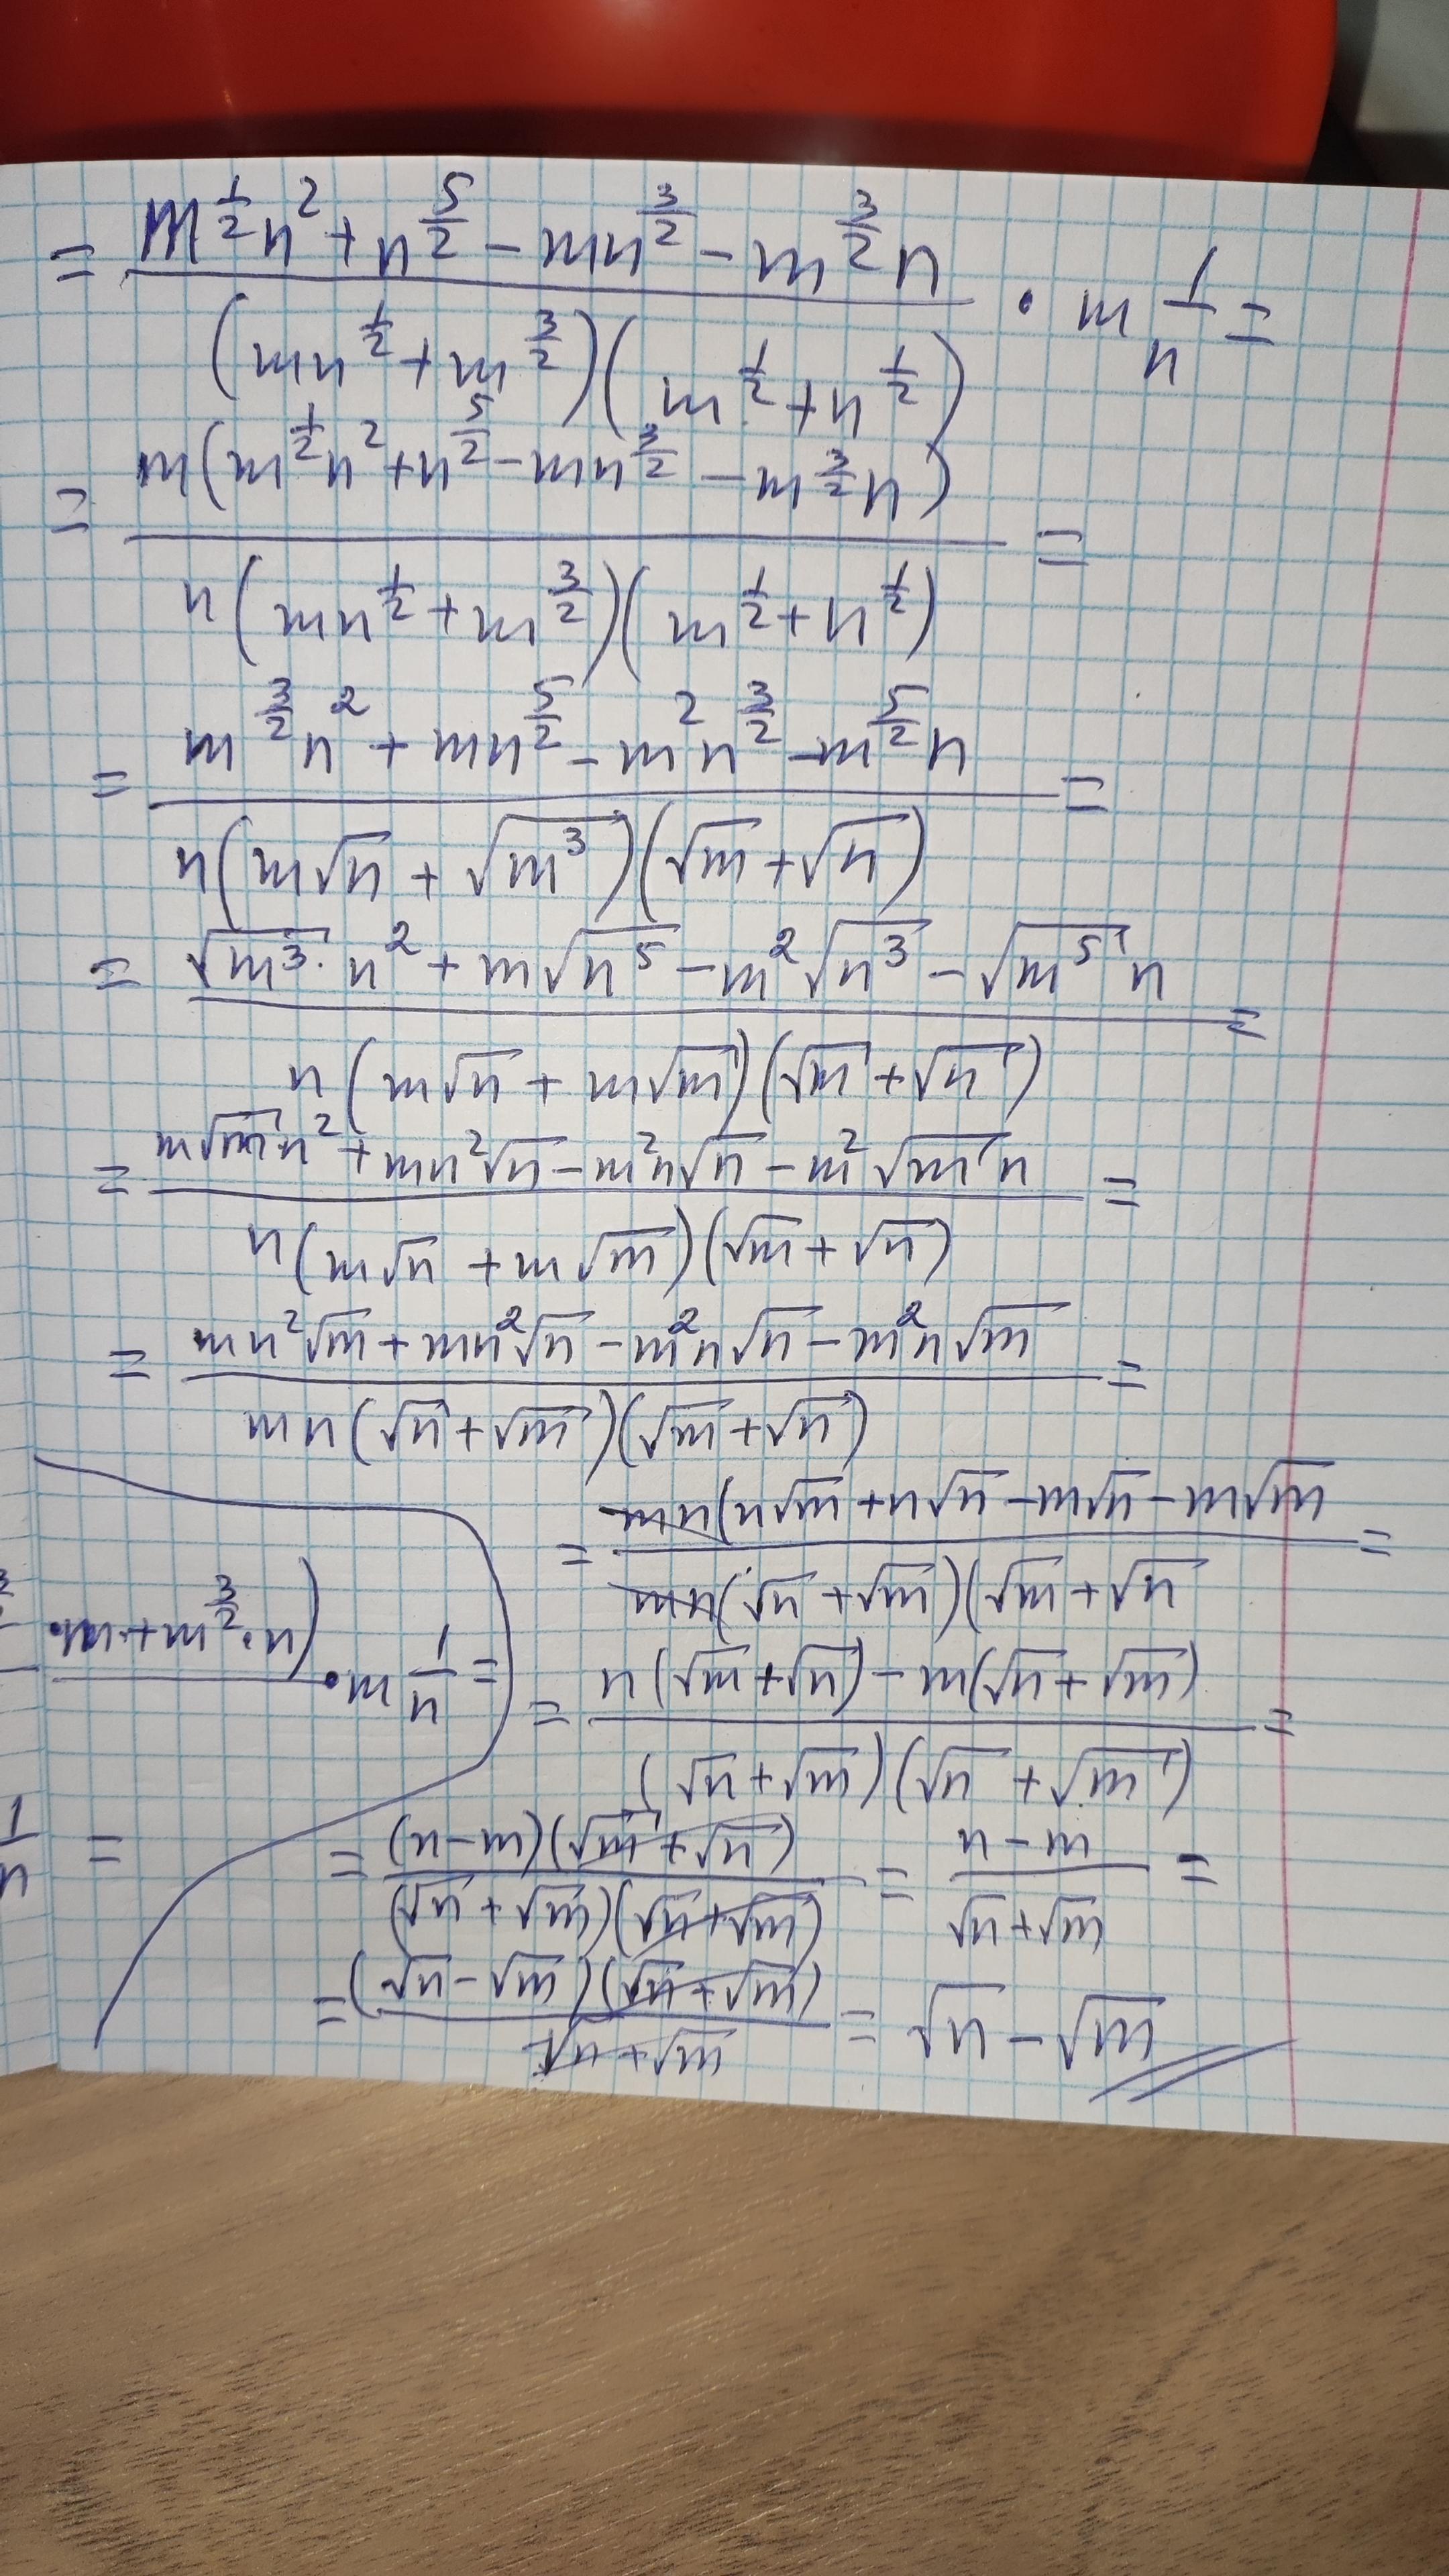 = (m^{1/2}n^2 + n^{5/2} - mn^{3/2} - m^{3/2}n) / ((mn^{1/2} + m^{3/2})(m^{1/2} + n^{1/2})) · m 1/n =
= m(m^{1/2}n^2 + n^{5/2} - mn^{3/2} - m^{3/2}n) / (n(mn^{1/2} + m^{3/2})(m^{1/2} + n^{1/2})) =
= (m^{3/2}n^2 + mn^{5/2} - m^2n^{3/2} - m^{5/2}n) / (n(m√n + √m^3)(√m + √n)) =
= (√m^3 · n^2 + m√n^5 - m^2√n^3 - √m^5 n) / (n(m√n + m√m)(√m + √n)) =
= (m√m n^2 + mn^2√n - m^2n√n - m^2√m n) / (n(m√n + m√m)(√m + √n)) =
= (mn^2√m + mn^2√n - m^2n√n - m^2n√m) / (mn(√n + √m)(√m + √n)) =
= mn(n√m + n√n - m√n - m√m / mn(√n + √m)(√m + √n =
·m+m^{3/2}·n) · m 1/n =
= (n(√m + √n) - m(√n + √m)) / ((√n + √m)(√n + √m)) =
1/n =
= (n-m)(√m + √n) / ((√n + √m)(√n + √m)) = (n - m) / (√n + √m) =
= (√n - √m)(√n + √m) / (√n + √m) = √n - √m